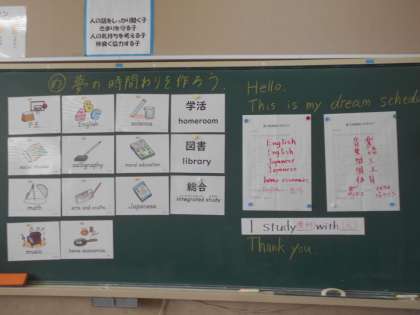 人の話をしっかり聴く子
きまりを守る子
人の気持ちを考える子
仲良く協力する子
夢の時間わりを作ろう。
P.E.
English
science
学活
homeroom
social studies
calligraphy
moral education
図書
library
math
arts and crafts
Japanese
総合
integrated study
music
home economics
Hello.
This is my dream schedu
English
English
Japanese
Japanese
home economics
音楽
I study with
Thank you.